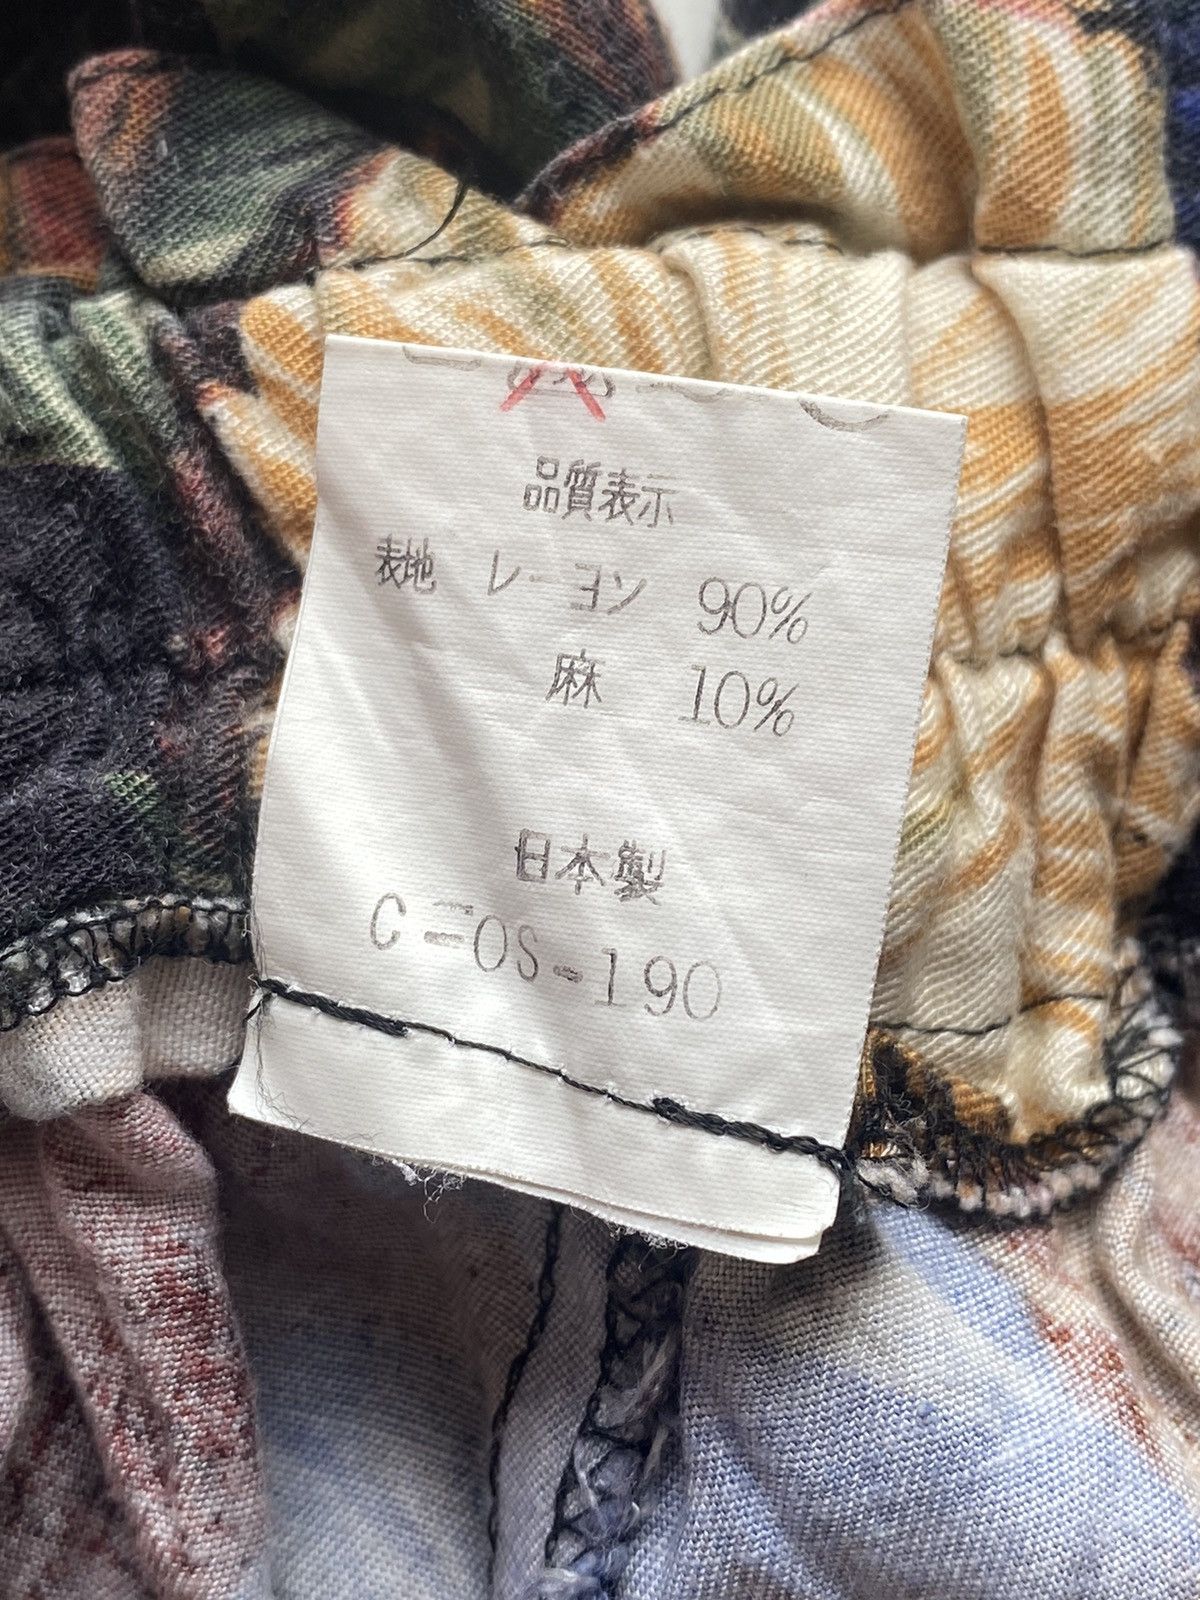 品質表示
表地 レーヨン 90%
麻 10%
日本製
C=OS-190